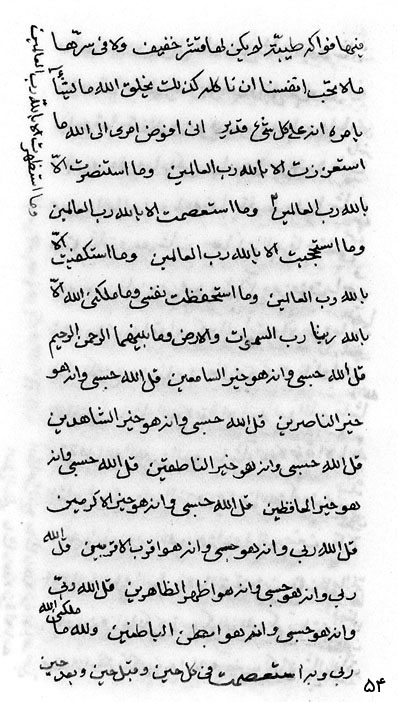 فيها فواكه طيبة لم يكن لها قشر خفيف ولا في سرها
ما لا تحب انفسنا ان ناكله كذلك يخلق الله ما يشاء
بامره انه على كل شيء قدير انى افوض امرى الى الله ما
استعززت الا بالله رب العالمين وما استنصرت الا
بالله رب العالمين وما استعصمت الا بالله رب العالمين
وما استحجبت الا بالله رب العالمين وما استكفيت الا
بالله رب العالمين وما استحفظت نفسى وما ملكنى الله الا
بالله ربنا رب السموات والارض وما بينهما الرحمن الرحيم
قل الله حسبى وانه هو خير السامعين قل الله حسبى وانه هو
خير الناصرين قل الله حسبى وانه هو خير الشاهدين
قل الله حسبى وانه هو خير الناطقين قل الله حسبى وانه
هو خير الحافظين قل الله حسبى وانه هو خير الاكرمين
قل الله ربى وانه هو حسبى وانه هو اقرب الاقربين قل الله
ربى وانه هو حسبى وانه هو اظهر الظاهرين قل الله ربى
وانه هو حسبى وانه هو ابطن الباطنين ولله ما ملكنى الله
ربى وبه استعصمت فى كل حين وقبل حين وبعد حين
وما استظهرت الا بالله رب العالمين
۵۴